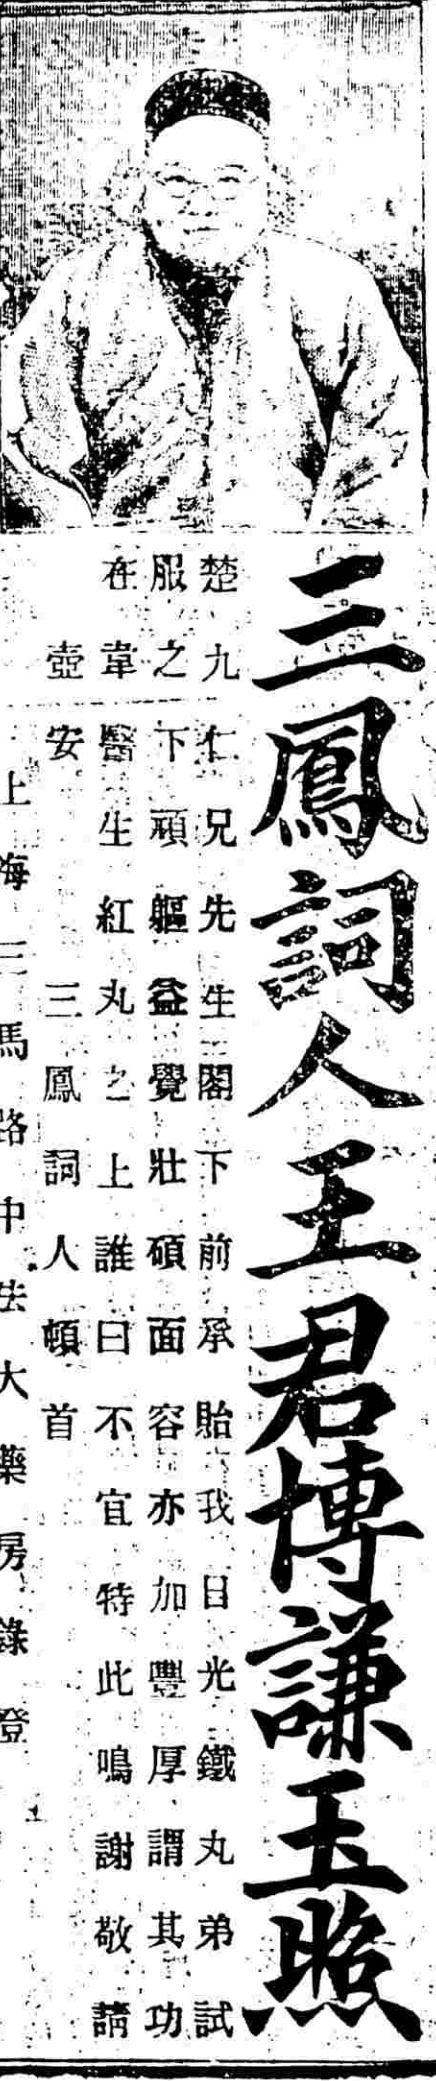 三鳳詞人王君博謙玉照
楚九仁兄先生閣下前承貽我日光鐵丸弟試
服之下頑軀益覺壯碩面容亦加豐厚謂其功
在韋醫生紅丸之上誰曰不宜特此鳴謝敬請
壺安 三鳳詞人頓首
上海三馬路中法大藥房錄登